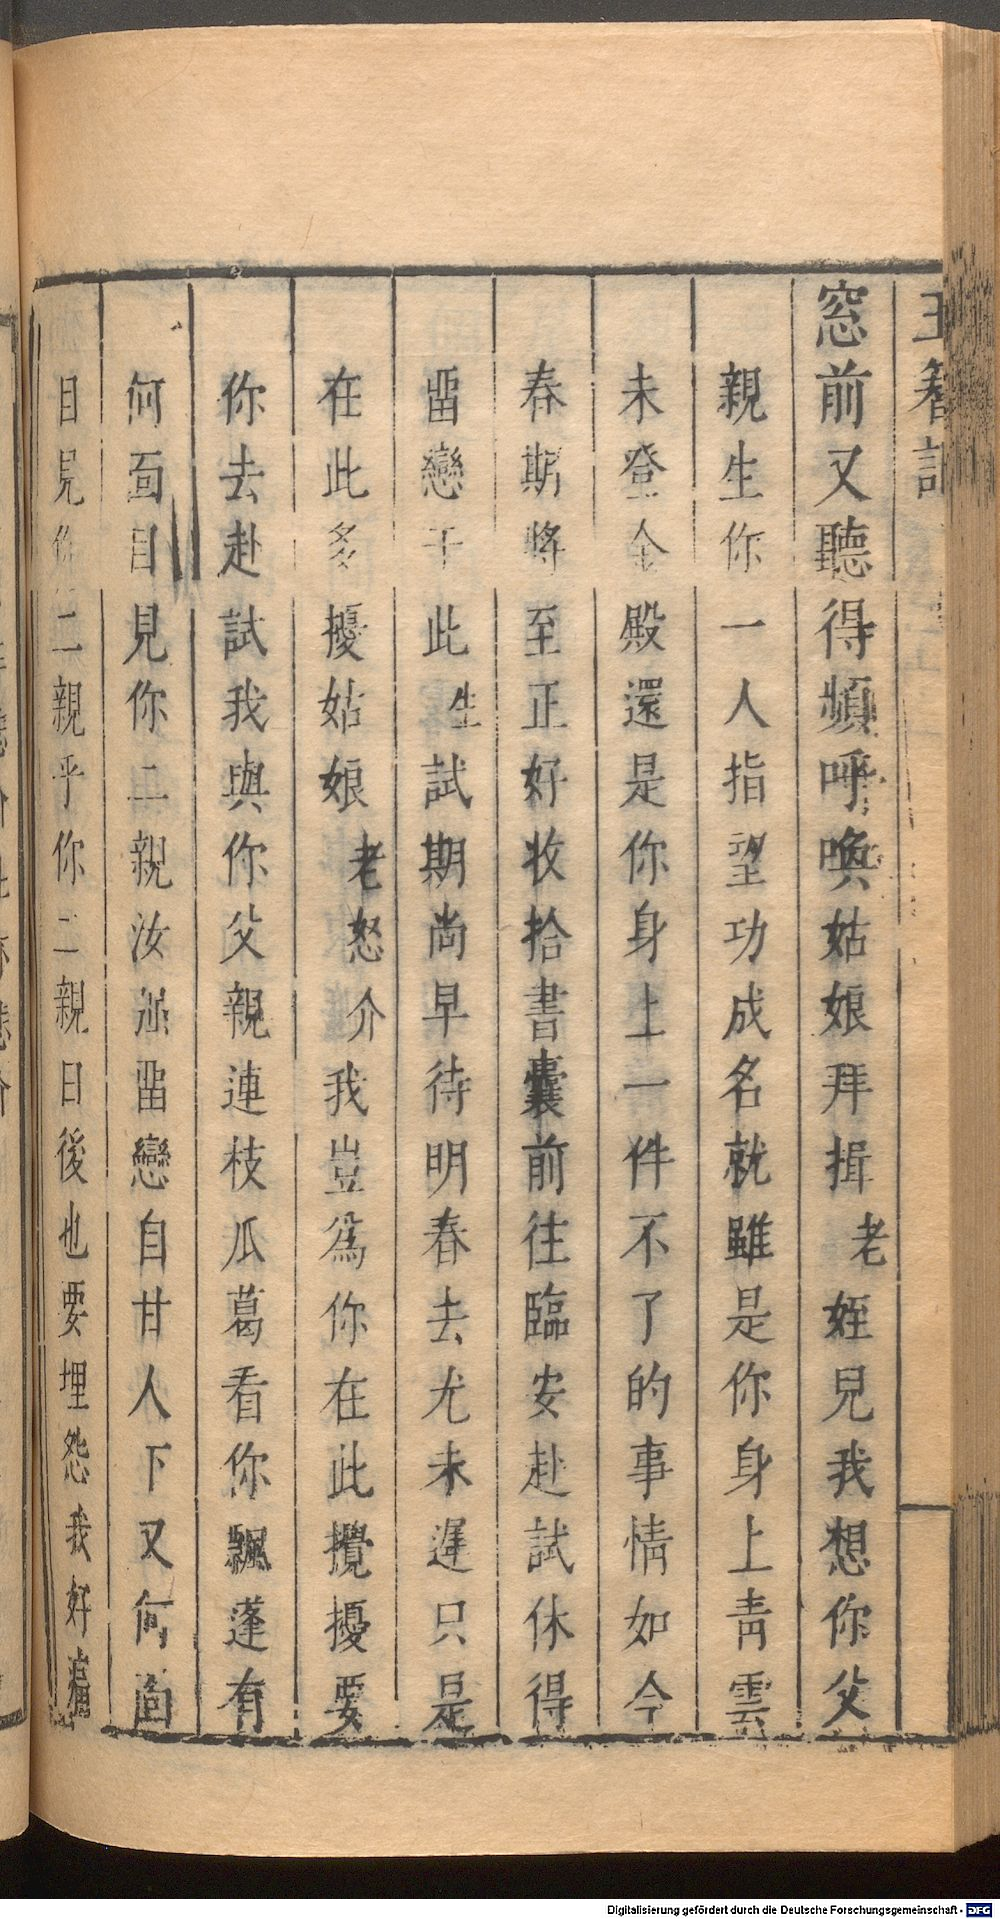 玉簪記
窓前又聽得頻呼喚姑娘拜揖老姪兒我想你父
親生你一人指望功成名就雖是你身上青雲
未登金殿還是你身上一件不了的事情如今
春期將至正好收拾書囊前往臨安赴試休得
畱戀于此生試期尚早待明春去尤未遲只是
在此多擾姑娘老怒介我豈爲你在此攪擾要
你去赴試我與你父親連枝瓜葛看你飄蓬有
何面目見你二親汝
畱戀自甘人下又何面
目見你二親乎你二親日後也要埋怨我好
Digitalisierung gefördert durch die Deutsche Forschungsgemeinschaft - DFG